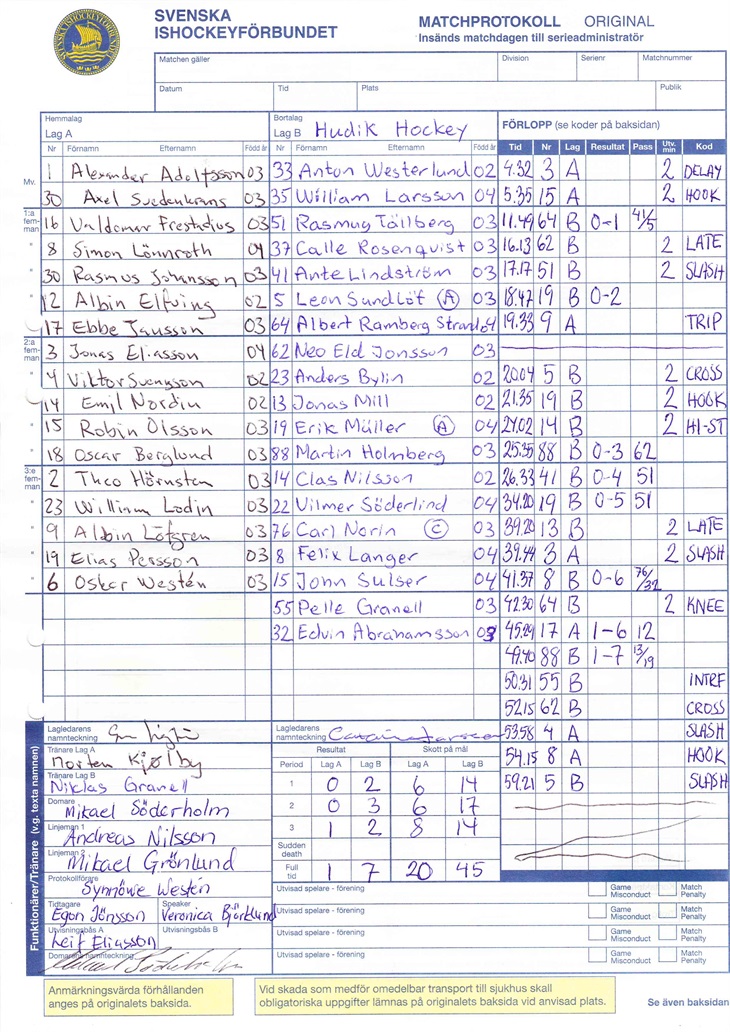 SVENSKA
ISHOCKEYFÖRBUNDET
MATCHPROTOKOLL ORIGINAL
Insänds matchdagen till serieadministratör
Matchen gäller Division Serienr Matchnummer
Datum Tid Plats Publik
Hemmalag Bortalag FÖRLOPP (se koder på baksidan)
Lag A Lag B Hudik Hockey
Nr Förnamn Efternamn Född år Nr Förnamn Efternamn Född år Tid Nr Lag Resultat Pass Utv. min Kod
Mv. 1 Alexander Adolfsson 03 33 Anton Westerlund 02 4.32 3 A 2 DELAY
30 Axel Svedenkrans 03 35 William Larsson 04 5.35 15 A 2 HOOK
1:a fem-man 16 Valdemar Frestadius 03 51 Rasmus Tällberg 03 11.49 64 B 0-1 41/5
" 8 Simon Lönnroth 04 37 Calle Rosenquist 03 16.13 62 B 2 LATE
" 30 Rasmus Johansson 03 41 Ante Lindström 03 17.17 51 B 2 SLASH
" 12 Albin Elfving 02 5 Leon Sundlöf (A) 03 18.47 19 B 0-2
" 17 Ebbe Jansson 03 64 Albert Ramberg Strand 04 19.33 9 A TRIP
2:a fem-man 3 Jonas Eliasson 04 62 Neo Eld Jonsson 03
" 4 Viktor Svensson 02 23 Anders Bylin 02 20.04 5 B 2 CROSS
" 14 Emil Nordin 02 13 Jonas Mill 02 21.35 19 B 2 HOOK
" 15 Robin Olsson 03 19 Erik Müller (A) 04 24.02 14 B 2 HI-ST
" 18 Oscar Berglund 03 88 Martin Holmberg 03 25.35 88 B 0-3 62
3:e fem-man 2 Theo Hörnsten 03 14 Clas Nilsson 02 26.33 41 B 0-4 51
" 23 William Lodin 03 22 Vilmer Söderlind 04 34.20 19 B 0-5 51
" 9 Albin Löfgren 03 76 Carl Norin (C) 03 39.20 13 B 2 LATE
" 19 Elias Persson 03 8 Felix Langer 04 39.44 3 A 2 SLASH
" 6 Oskar Westén 03 15 John Sulser 04 41.37 8 B 0-6 76/32
55 Pelle Granell 03 42.30 64 B 2 KNEE
32 Edvin Abrahamsson 03 45.29 17 A 1-6 12
49.40 88 B 1-7 13/19
50.31 55 B INTRF
52.15 62 B CROSS
Lagledarens namnteckning Lagledarens namnteckning 53.58 4 A SLASH
Tränare Lag A Morten Kjølby Resultat Skott på mål 54.15 8 A HOOK
Tränare Lag B Niklas Granell Period Lag A Lag B Lag A Lag B 59.21 5 B SLASH
Domare Mikael Söderholm 1 0 2 6 14
Linjeman 1 Andreas Nilsson 2 0 3 6 17
Linjeman 2 Mikael Grönlund 3 1 2 8 14
Sudden death
Protokollförare Synnöwe Westén Full tid 1 7 20 45
Funktionärer/Tränare (v.g. texta namnen)
Tidtagare Egon Jönsson Speaker Veronica Björklund
Utvisningsbås A Leif Eliasson Utvisningsbås B
Domarens namnteckning
Utvisad spelare - förening Game Misconduct Match Penalty
Utvisad spelare - förening Game Misconduct Match Penalty
Utvisad spelare - förening Game Misconduct Match Penalty
Utvisad spelare - förening Game Misconduct Match Penalty
Anmärkningsvärda förhållanden
anges på originalets baksida.
Vid skada som medför omedelbar transport till sjukhus skall
obligatoriska uppgifter lämnas på originalets baksida vid anvisad plats.
Se även baksidan